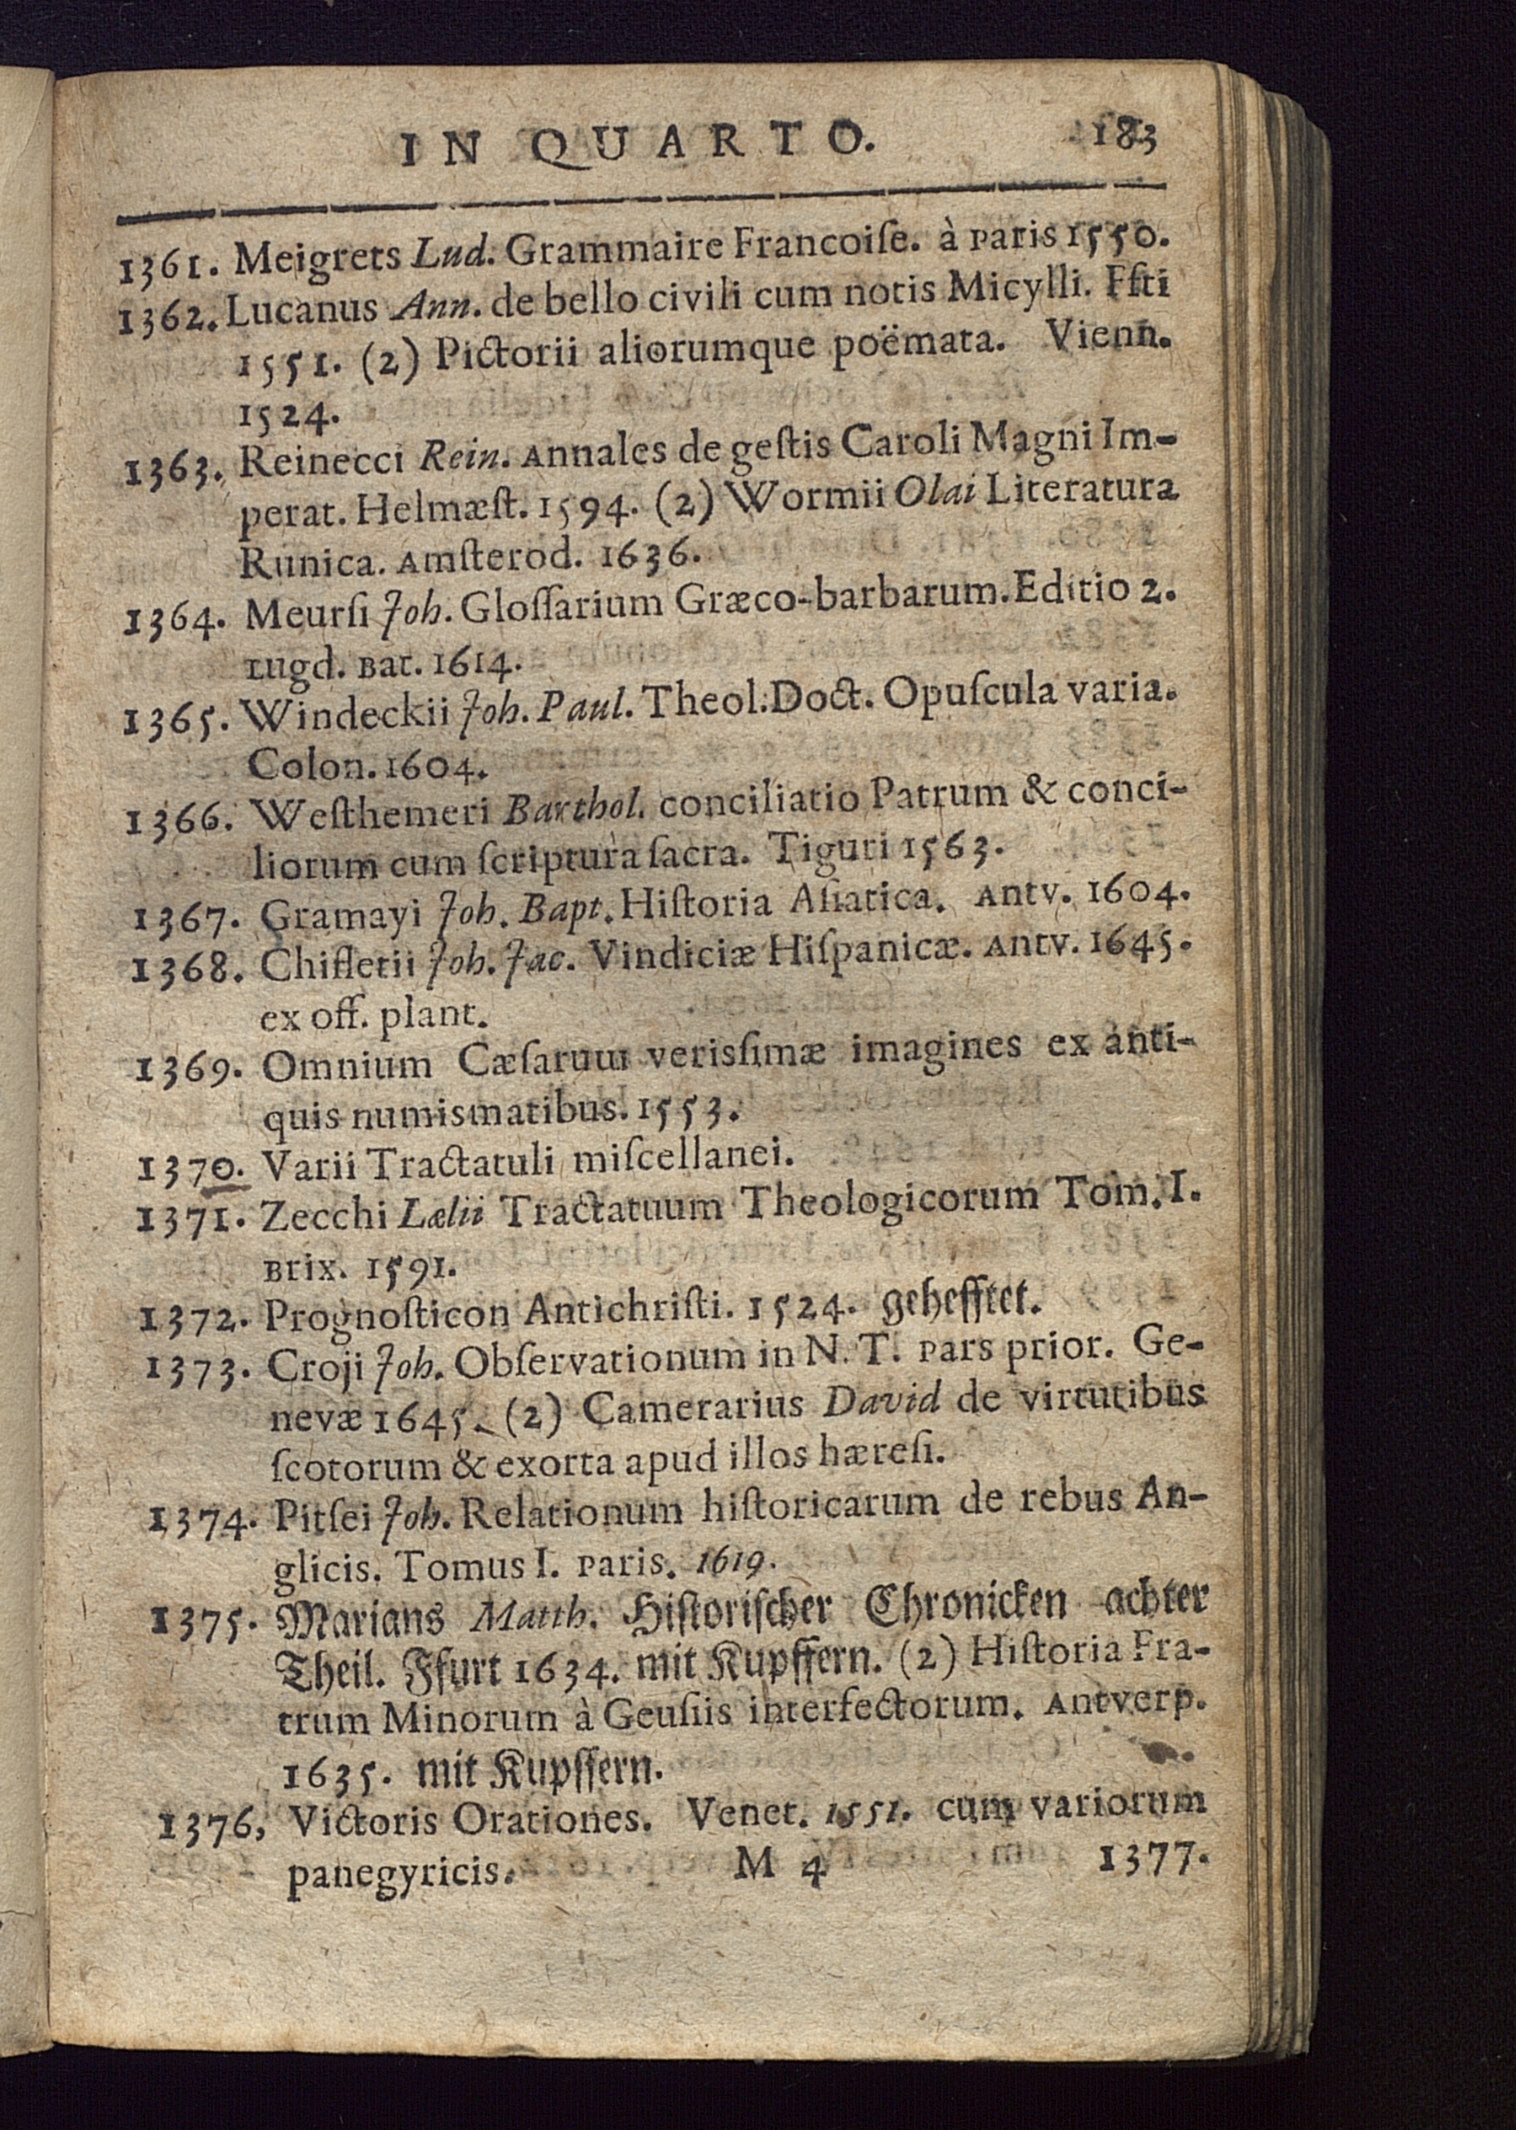 IN QUARTO. 183
1361. Meigrets Lud. Grammaire Francoiſe. à Paris 1550.
1362. Lucanus Ann. de bello civili cum notis Micylli. Ffti
1551. (2) Pictorii aliorumque poëmata. Vienn.
1524.
1363. Reinecci Rein. Annales de geſtis Caroli Magni Im-
perat. Helmæſt. 1594. (2) Wormii Olai Literatura
Runica. Amſterod. 1636.
1364. Meurſi Joh. Gloſſarium Græco-barbarum. Editio 2.
Lugd. Bat. 1614.
1365. Windeckii Joh. Paul. Theol. Doct. Opuſcula varia.
Colon. 1604.
1366. Weſthemeri Barthol. conciliatio Patrum & conci-
liorum cum ſcriptura ſacra. Tiguri 1563.
1367. Gramayi Joh. Bapt. Hiſtoria Aſiatica. Antv. 1604.
1368. Chifletii Joh. Jac. Vindiciæ Hiſpanicæ. Antv. 1645.
ex off. plant.
1369. Omnium Cæſarum verisſimæ imagines ex anti-
quis numismatibus. 1553.
1370. Varii Tractatuli miſcellanei.
1371. Zecchi Lælii Tractatuum Theologicorum Tom. I.
Brix. 1591.
1372. Prognoſticon Antichriſti. 1524. gehefftet.
1373. Croji Joh. Obſervationum in N. T. Pars prior. Ge-
nevæ 1645. (2) Camerarius David de virtutibus
ſcotorum & exorta apud illos hæreſi.
1374. Pitſei Joh. Relationum hiſtoricarum de rebus An-
glicis. Tomus I. Paris. 1619.
1375. Marians Matth. Hiſtoriſcher Chronicken achter
Theil. Ffurt 1634. mit Kupffern. (2) Hiſtoria Fra-
trum Minorum à Geuſiis interfectorum. Antverp.
1635. mit Kupffern.
1376, Victoris Orationes. Venet. 1551. cum variorum
panegyricis. M 4 1377.